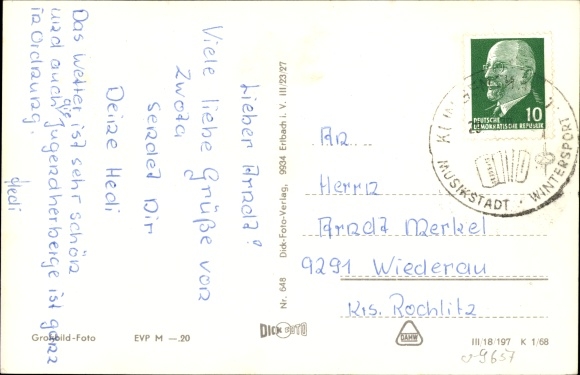 Lieber Arnd!
Viele liebe Grüße von
Zwota
sendet Dir
Deine Hedi
Das Wetter ist sehr schön
und auch die Jugendherberge ist ganz
in Ordnung.
Hedi
Großbild-Foto
EVP M —.20
Nr. 648 Dick-Foto-Verlag, 9934 Erlbach i. V. III/23/27
DICK FOTO
10
DEUTSCHE
DEMOKRATISCHE REPUBLIK
MUSIKSTADT · WINTERSPORT
An
Herrn
Arndt Merkel
9291 Wiederau
Krs. Rochlitz
DAHW
III/18/197 K 1/68
v9657